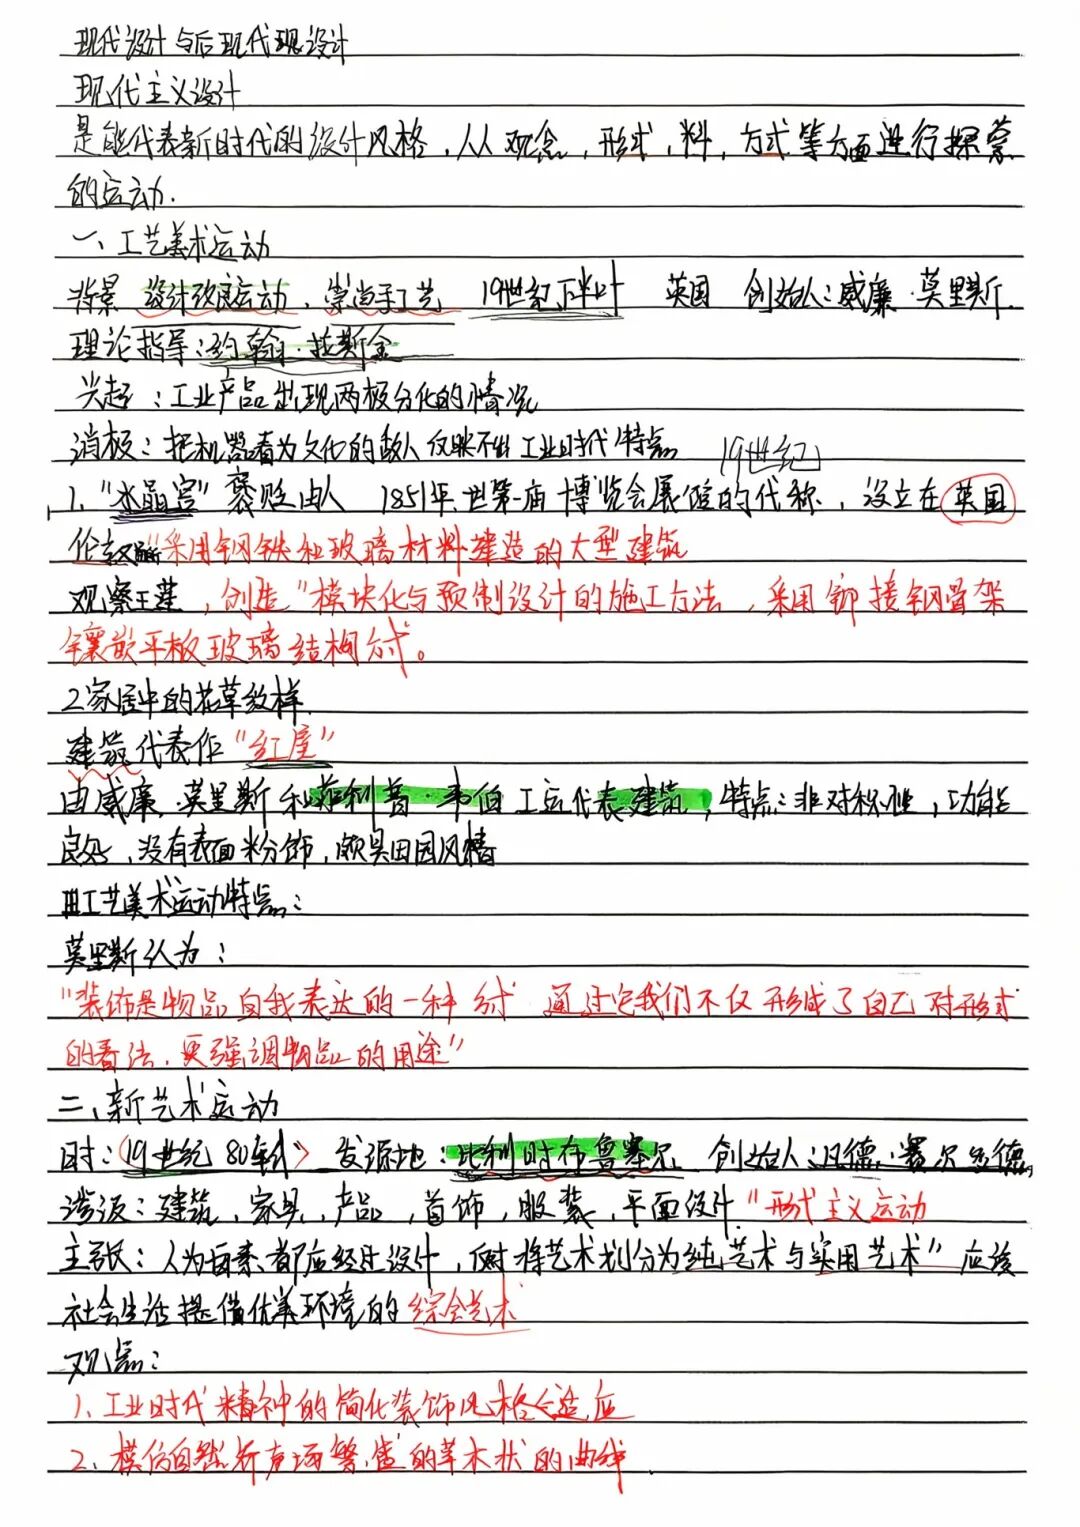 现代设计与后现代现设计
现代主义设计
是能代表新时代的设计风格,从观念,形式,料,方式等方面进行探索
的运动.
一、工艺美术运动
背景 设计改良运动,崇尚手工艺 19世纪下半叶 英国 创始人:威廉·莫里斯.
理论指导:约翰·拉斯金
兴起:工业产品出现两极分化的情况
消极:把机器看为文化的敌人 反映不出工业时代特点 19世纪
1."水晶宫"褒贬由人 1851年世第一届博览会展馆的代称,设立在英国
伦敦 "采用钢铁和玻璃材料建造的大型建筑
观察王莲,创造"模块化与预制设计的施工方法,采用铆接钢骨架
镶嵌平板玻璃结构方式。
2.家居中的花草纹样
建筑代表作"红屋"
由威廉·莫里斯和菲利普·韦伯 代表建筑,特点:非对称性,功能
良好,没有表面粉饰,颇具田园风情
工艺美术运动特点:
莫里斯认为:
"装饰是物品自我表达的一种方式 通过它我们不仅形成了自己对形式
的看法,更强调物品的用途"
二、新艺术运动
时:(19世纪80年代) 发源地:比利时布鲁塞尔 创始人:凡德·
涉及:建筑,家具,产品,首饰,服装,平面设计"形式主义运动
主张:人为因素都应经过设计,反对将艺术划分为纯艺术与实用艺术"应该
社会生活提借优美环境的综合艺术
观点:
1、工业时代精神的简化装饰风格合适应
2、模仿自然 草木状的曲线